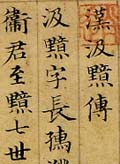 漢汲黯傳
汲黯字長孺濮
衛君至黯七世